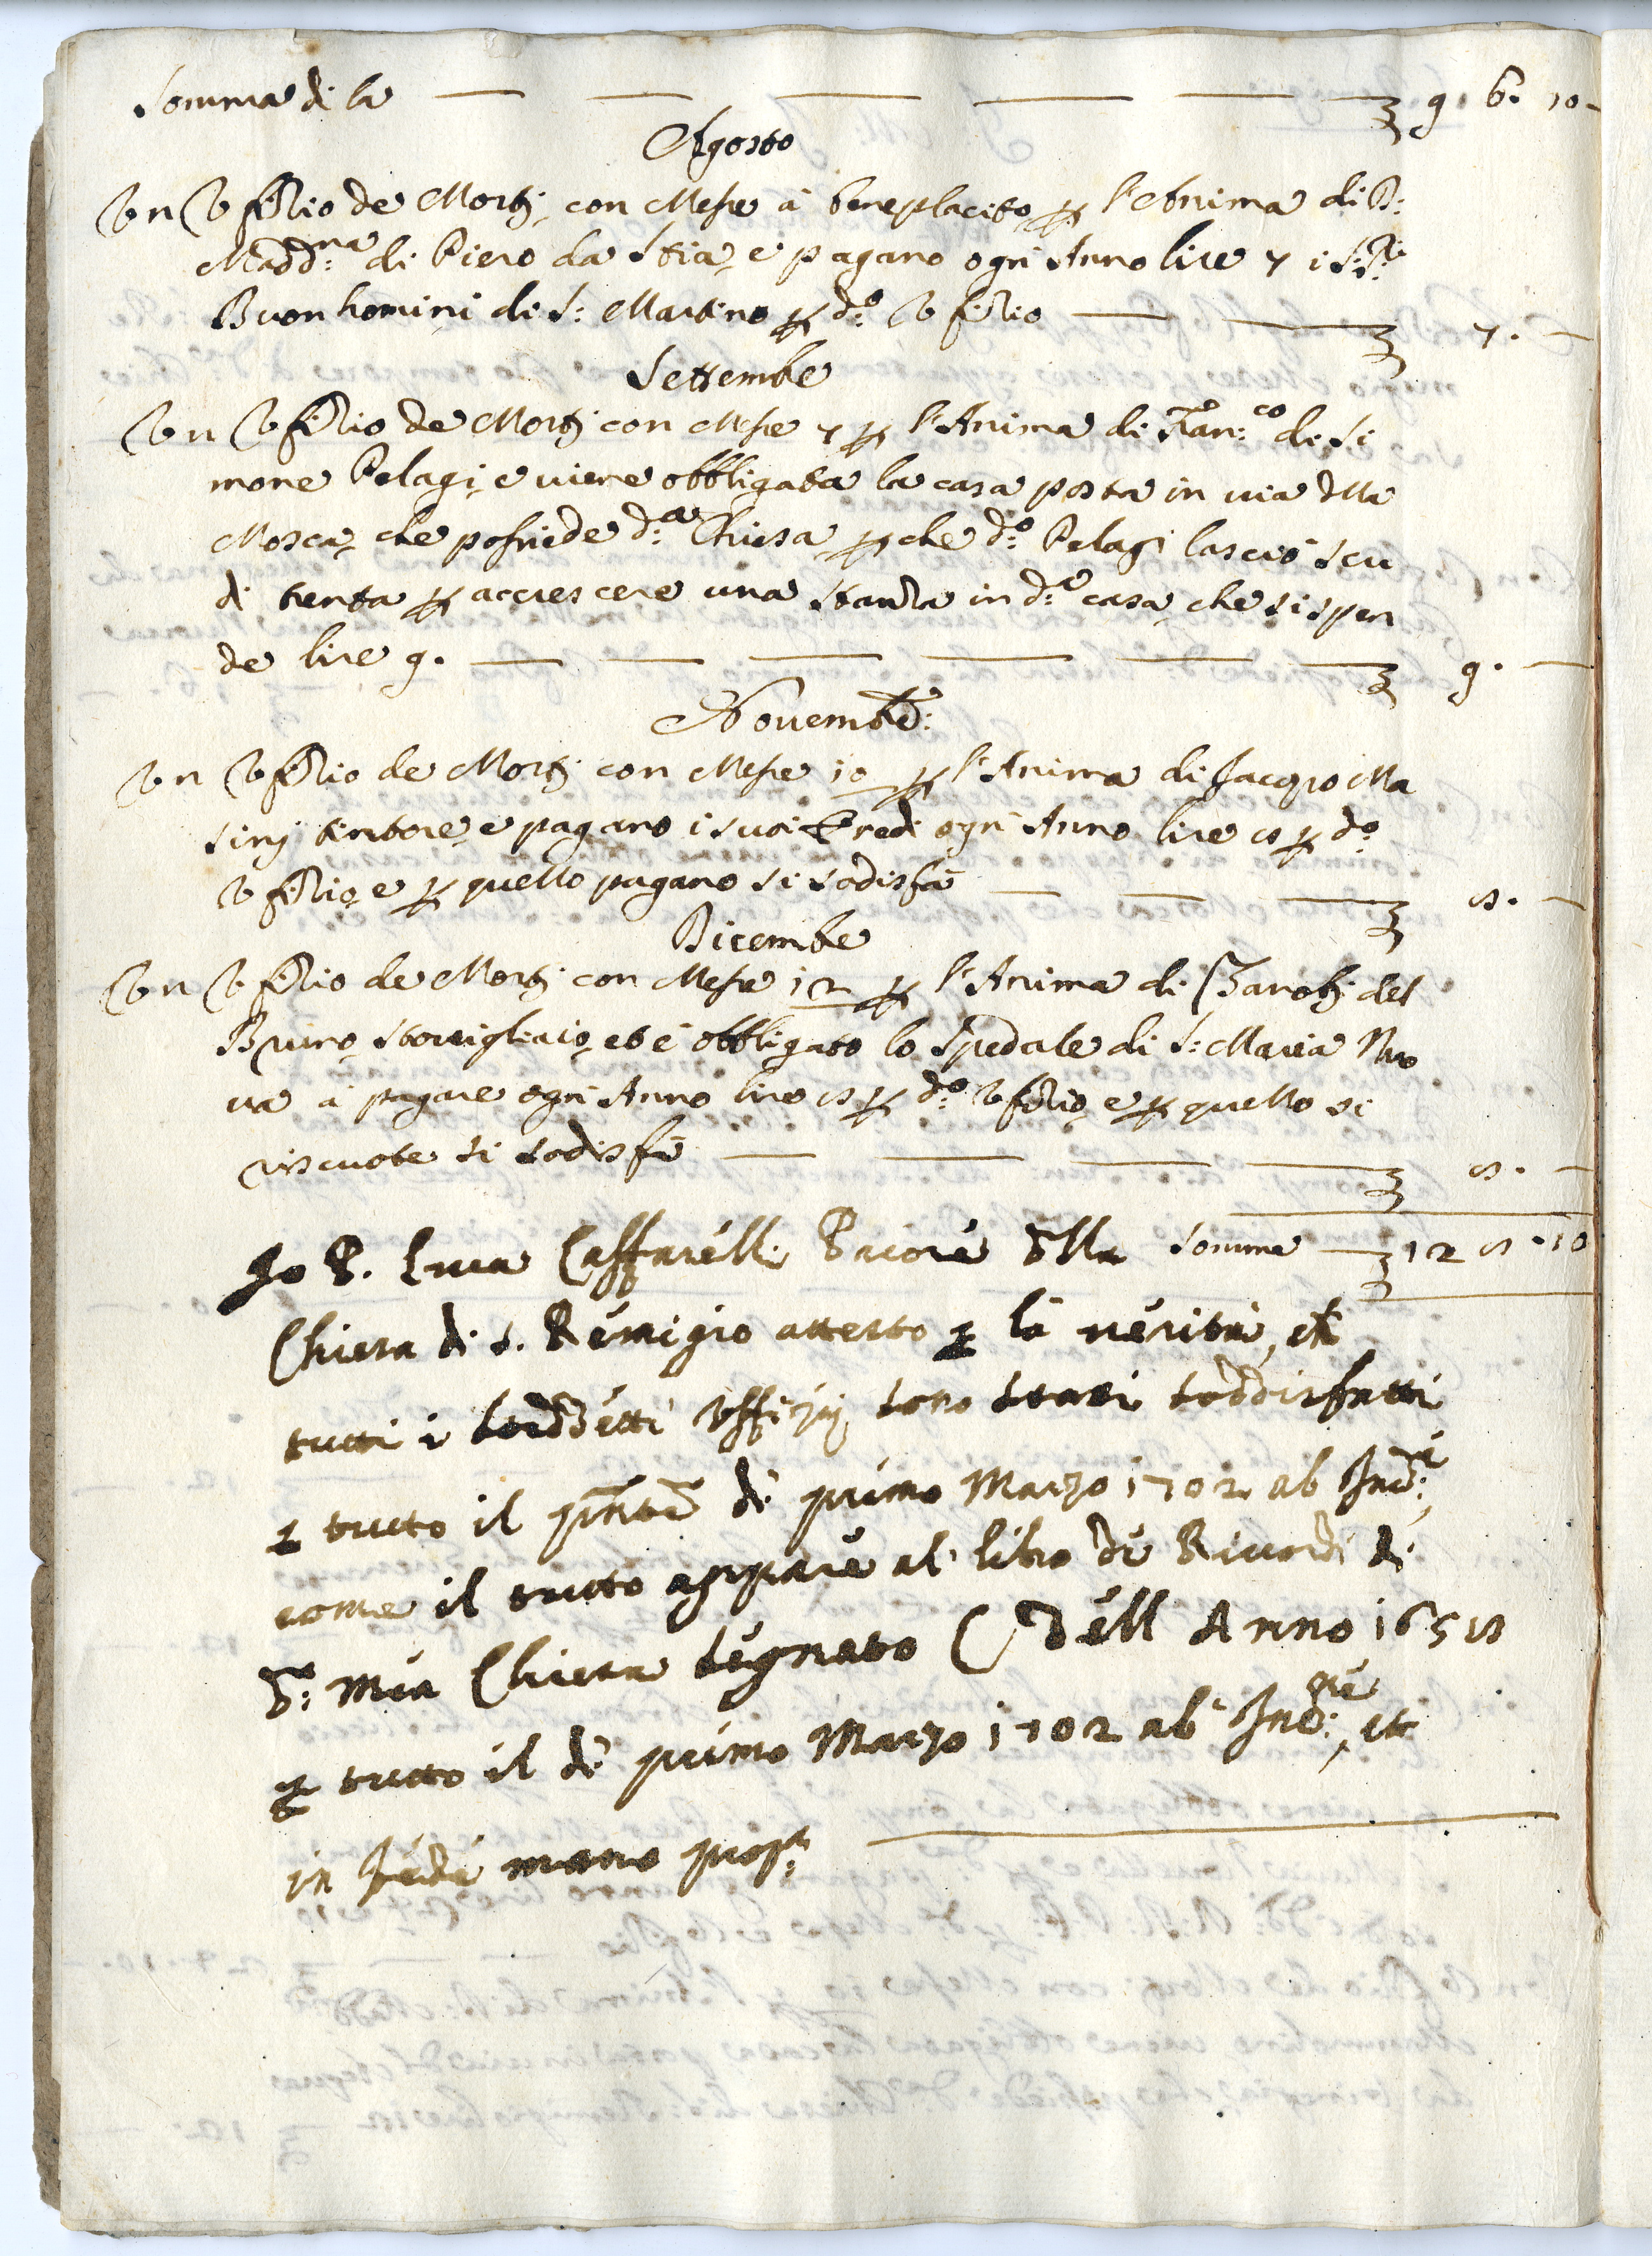 Somma di la — — — — — — 9 6. 10 -
Agosto
Un Ufitio de Morti, con Messe à beneplacito p l'Anima di D:
Madd:na di Piero da Stia, e pagano ogn' Anno lire 7 i SS:ri
Buonhomini di S: Martino p d:o Ufitio — — 7. —
Settembre
Un Ufitio de Morti con Messe 7 p l'Anima di Fran:co di Si
mone Pelagi, e viene obbligata la casa posta in via della
Mosca, che possiede d:a Chiesa, p che d:o Pelagi lasciò scu
di trenta p accrescere una stanza in d:a casa, che si spen
de lire 9. — — — — — — 9. —
Novemb:
Un Ufitio de Morti con Messe 10 p l'Anima di Jacopo Ma
sini tintore, e pagano i suoi Eredi ogn' Anno lire 8 p d:o
Ufitio, e p quello pagano si sodisfà — — — 8. —
Dicembre
Un Ufitio de Morti con Messe 12 p l'Anima di Zanobi del
Bruno, stovigliaio, et è obbligato lo Spedale di S: Maria Nuo
va à pagare ogn' Anno lire 8 p d:o Ufitio, e p quello si
riscuote si sodisfà — — — — 8. —
Somma — 12 8 . 10
Io P. Luca Caffarelli Priore della
Chiesa di S. Remigio attesto p la verità, et
tutti i sudd:etti Uffizij sono stati soddisfatti
p tutto il pnte dì primo Marzo 1702 ab Inc:e
come il tutto appare al libro de Ricordi di
d:a mia Chiesa segnato C dell Anno 1658
p tutto il dì primo Marzo 1702 ab Inc:ne, et
in fede mano prop:a